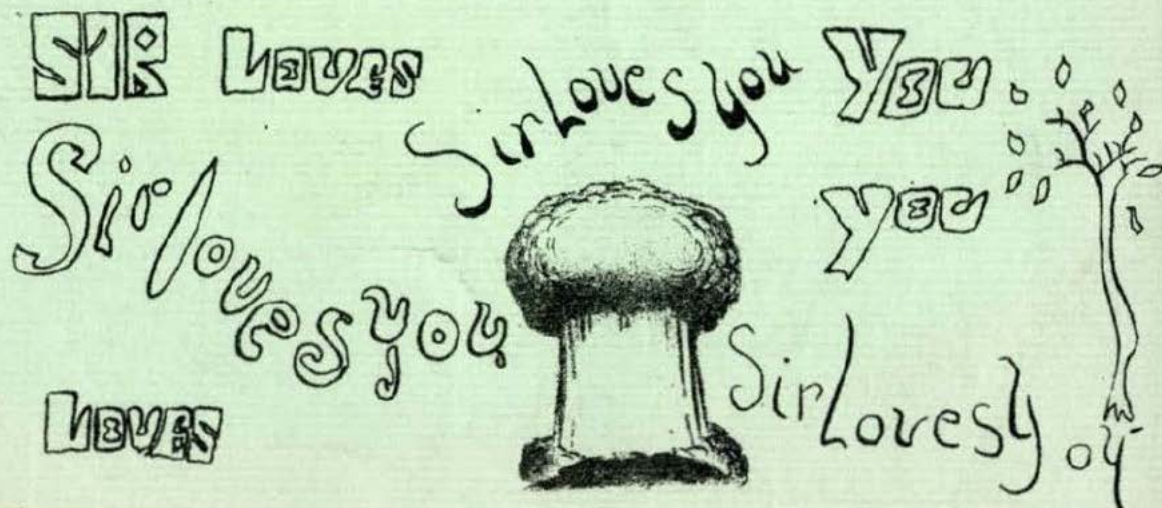 SIR Loves You
Sir Loves you
Sir loves you
you
Loves
Sir Loves you